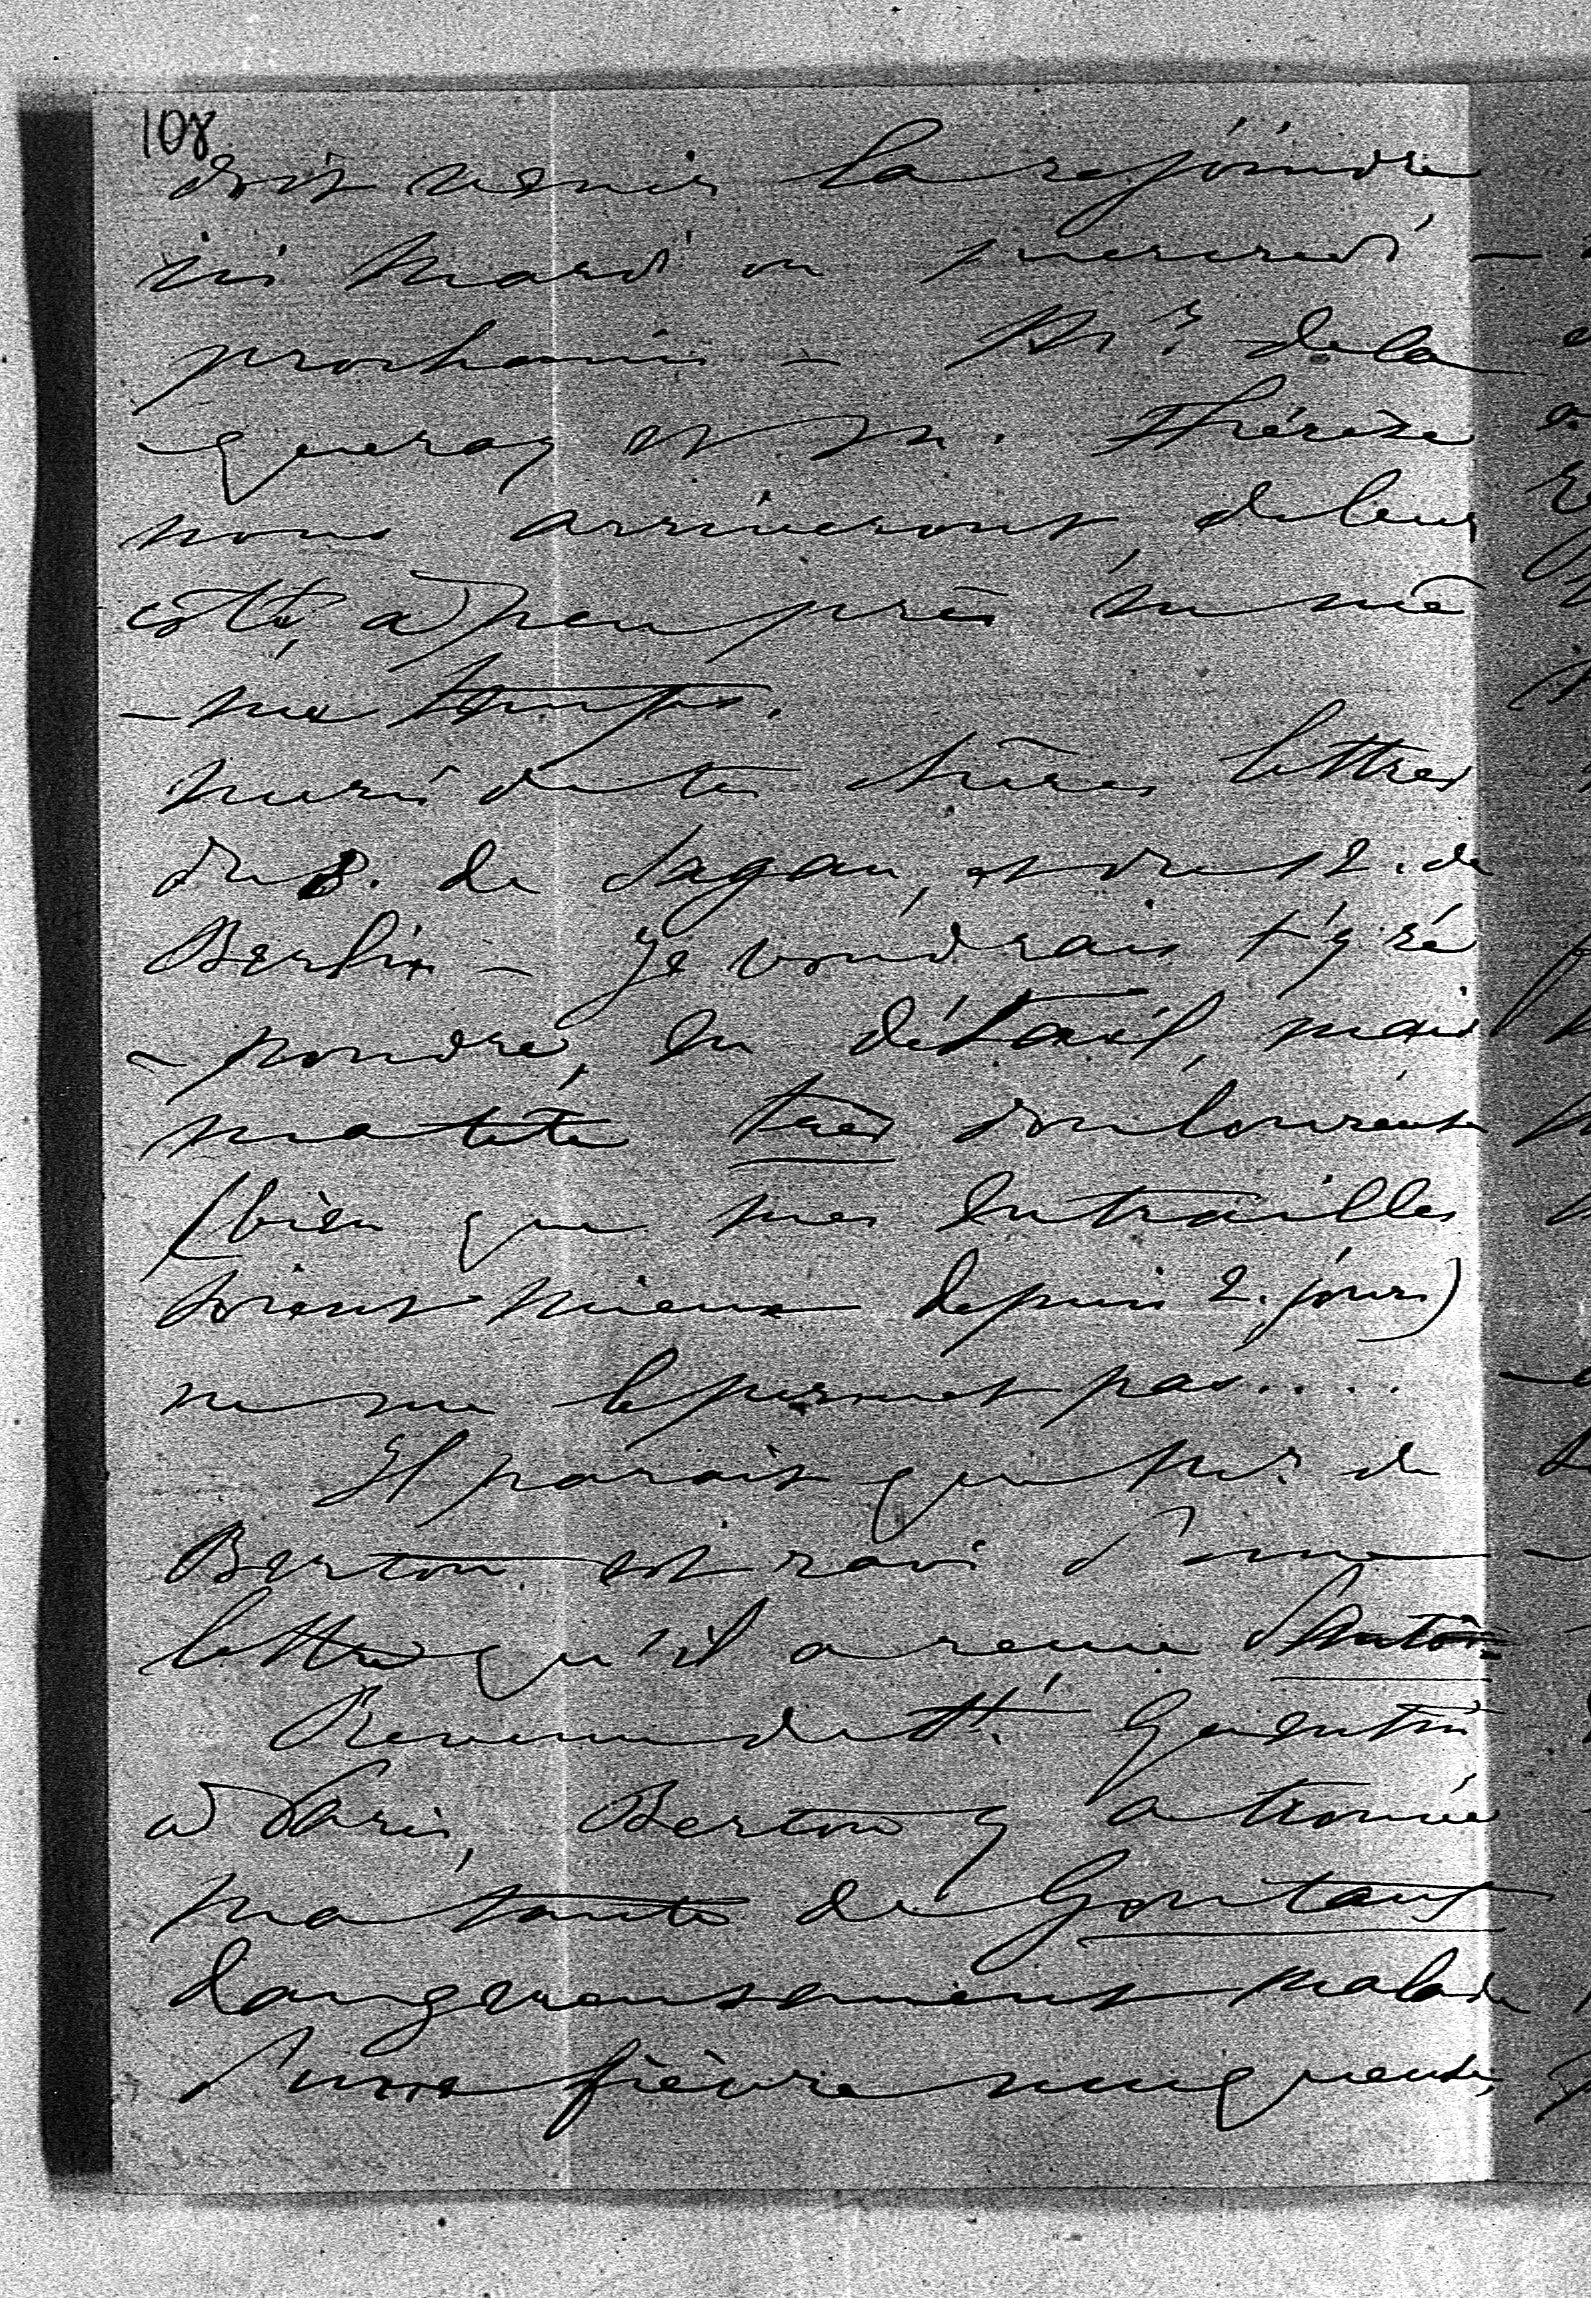 108
doit venir la rejoindre
ici mardi ou mercredi
prochains – Mr de la
gueray et M. Thérèse
nous arriveront, de leur
côté, à peu près en mê
-me temps.
merci de tes chères lettres
du 8. de Sagan, et du 12. de
Berlin – je voudrais t'y ré
-pondre, en détail, mais
ma tête très douloureuse
(bien que mes entrailles
soient mieux depuis 2. jours)
ne me le permet pas....
Il parait que Mr de
Berton est ravi d'une
lettre qu'il a reçue d'Anton
Revenu de St. Quentin
à Paris, Berton y a trouvé
ma tante de Gontaut
dangereusement malade
d'une fièvre muqueuse,